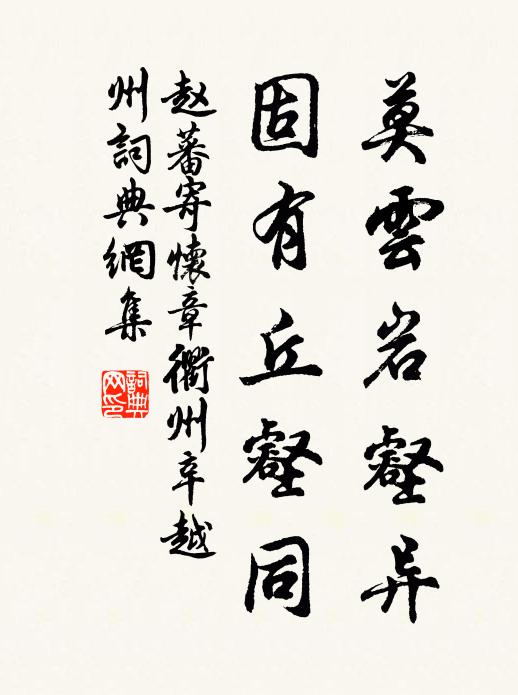 莫雲岩壑异
固有丘壑同
赵蕃寄懷章衢州卒越
州詞典網集
詞典
网印